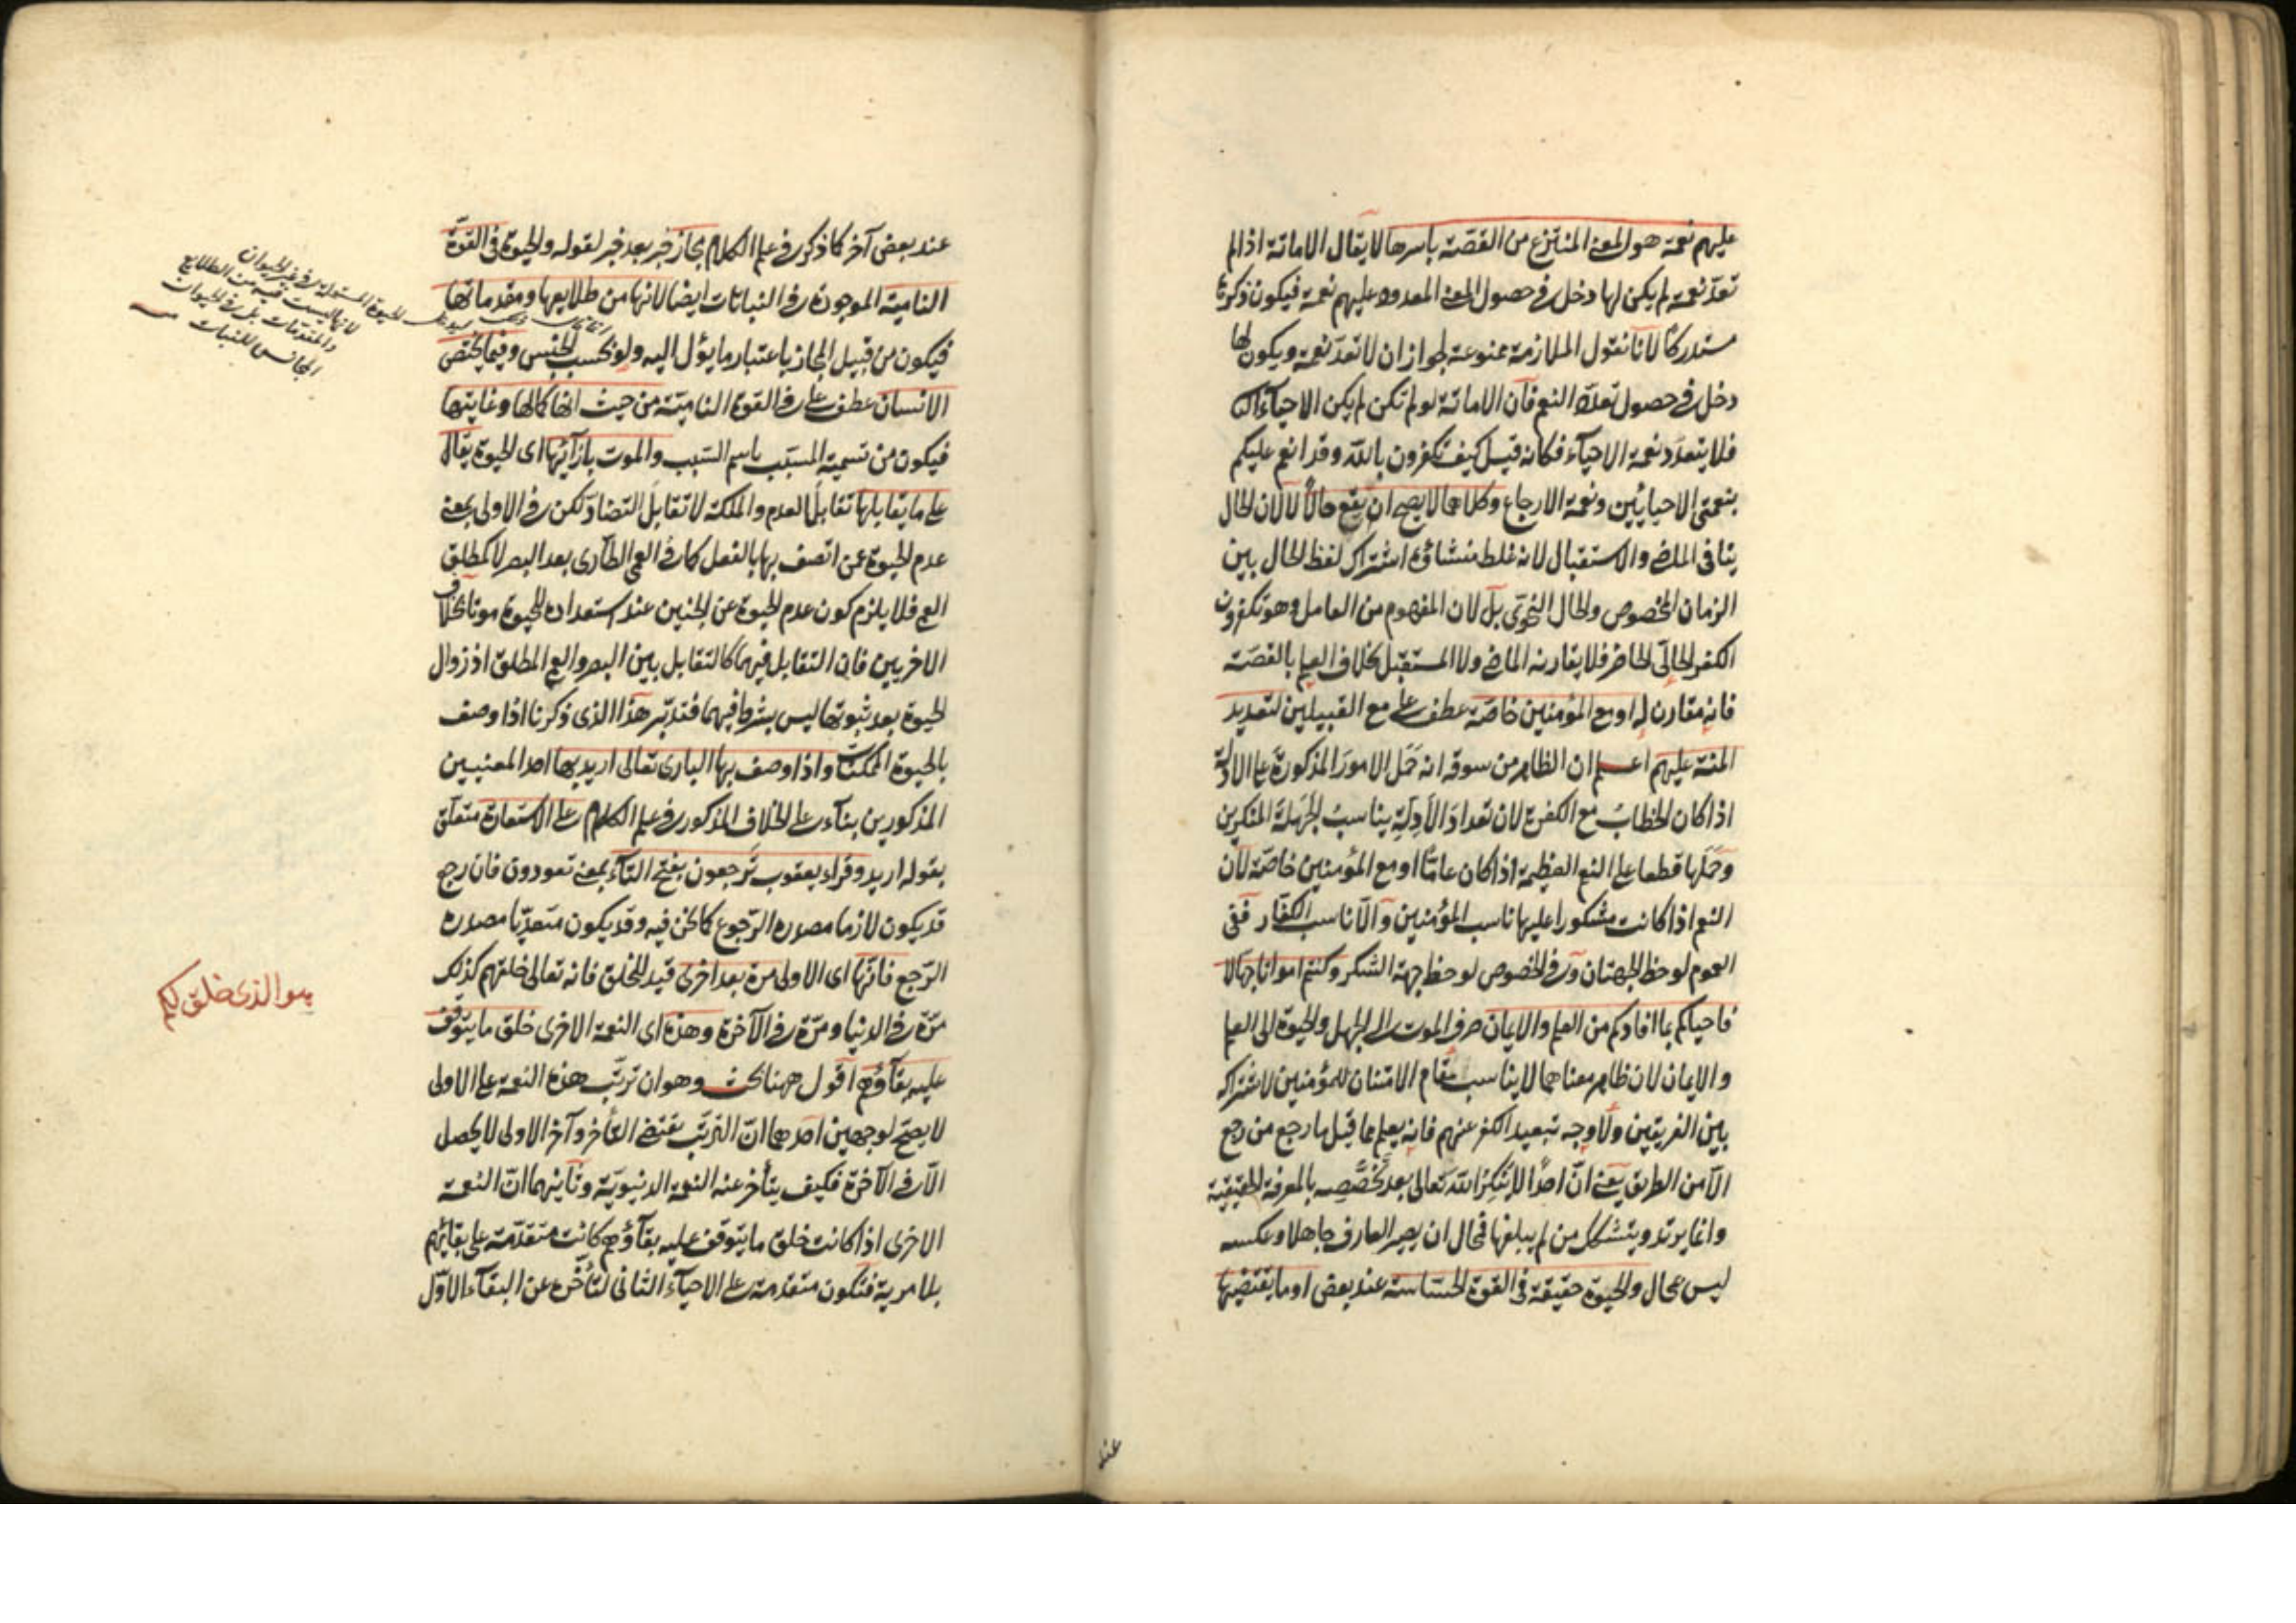 عليهم نعمة هو المعنى المنتزع من القصة باسرها لا يقال الاماتة اذا لم
تعد نعمة لم يكن لها دخل في حصول المعنى المعدود عليهم نعمة فيكون ذكرها
مستدركا لانا نقول الملازمة ممنوعة لجواز ان لا تعد نعمة ويكون لها
دخل في حصول تعدد النعم فان الاماتة لو لم تكن لم يكن الاحياء
فلا يتعدد نعمة الاحياء فكانه قيل كيف تكفرون بالله وقد انعم عليكم
بنعمتي الاحيائين ونعمة الارجاع وكلاهما لا يصح ان يقع حالا لا لان الحال
ينافي الماضي والاستقبال لانه غلط منشاؤه اشتراك لفظ الحال بين
الزمان المخصوص والحال النحوي بل لان المفهوم من العامل وهو تكفرون
الكفر الحالي الحاضر فلا يقارنه الماضي ولا المستقبل بخلاف العلم بالقصة
فانه مقارن له او مع المؤمنين خاصة عطف على مع القبيلين لتعديد
المنة عليهم اعلم ان الظاهر من سوقه انه حمل الامور المذكورة على الادلة
اذا كان الخطاب مع الكفرة لان تعداد الادلة يناسب الجهلة المنكرين
وحملها قطعا على النعم العظيمة اذا كان عاما او مع المؤمنين خاصة لان
النعم اذا كانت مشكورا عليها ناسب المؤمنين والا ناسب الكفار ففى
العموم لوحظ الجهتان وفي الخصوص لوحظ جهة الشكر وكنتم امواتا جهالا
فاحياكم بما افادكم من العلم والايمان صرف الموت الى الجهل والحيوة الى العلم
والايمان لان ظاهر معناهما لا يناسب مقام الامتنان للمؤمنين لاشتراكه
بين الفريقين ولا وجه تبعيد الكفر عنهم فانه يعلم مما قبل ما رجع من رجع
الا من الطريق يعنى ان احدا لا ينكر الله تعالى بعد تخصصه بالمعرفة الحقيقية
وانما يرتد ويتشكك من لم يبلغها فمحال ان يصير العارف جاهلا وعكسه
ليس بمحال والحيوة حقيقة في القوة الحساسة عند بعض او ما يقتضيها
عند
عند بعض آخر كما ذكر في علم الكلام مجاز خبر بعد خبر لقوله والحيوة في القوة
النامية الموجودة في النباتات ايضا لانها من طلايعها ومقدماتها
فيكون من قبيل المجاز باعتبار ما يؤل اليه ولو بحسب الجنس وفيما يختص
الانسان عطف على في القوة النامية من حيث انها كمالها وغايتها
فيكون من تسمية المسبب باسم السبب والموت بازآئها اى الحيوة يقال
على ما يقابلها تقابل العدم والملكة لا تقابل التضاد لكن في الاولى بمعنى
عدم الحيوة عمن اتصف بها بالفعل كما في العمى الطارى بعد البصر لا كمطلق
العمى فلا يلزم كون عدم الحيوة عن الجنين عند استعداده للحيوة موتا بخلاف
الاخريين فان التقابل فيهما كالتقابل بين البصر والعمى المطلق اذ زوال
الحيوة بعد ثبوتها ليس بشرط فيهما فتدبر هذا الذى ذكرنا اذا وصف
بالحيوة الممكنات واذا وصف بها البارى تعالى اريد بها احد المعنيين
المذكورين بناء على الخلاف المذكور في علم الكلام على الاستعارة متعلق
بقوله اريد وقراء يعقوب ترجعون بفتح التاء بمعنى تعودون فان رجع
قد يكون لازما مصدره الرجوع كما نحن فيه وقد يكون متعديا مصدره
الرجع فانها اى الاولى مرة بعد اخرى قيد للخلق فانه تعالى خلقهم كذلك
مرة في الدنيا ومرة في الآخرة وهذه اى النعمة الاخرى خلق ما يتوقف
عليه بقاؤهم اقول ههنا بحث وهو ان ترتب هذه النعمة على الاولى
لا يصح لوجهين احدهما ان الترتب يقتضى التأخر وآخر الاولى لا يحصل
الا في الآخرة فكيف يتأخر عنه النعمة الدنيوية وثانيهما ان النعمة
الاخرى اذا كانت خلق ما يتوقف عليه بقاؤهم كانت متقدمة على بقائهم
بلا مرية فتكون متقدمة على الاحياء الثانى لتأخره عن البقاء الاول
لانها ليست فيه من الطلايع
والمقدمات بل في الحيوان
المجانس للنبات
هو الذى خلق لكم